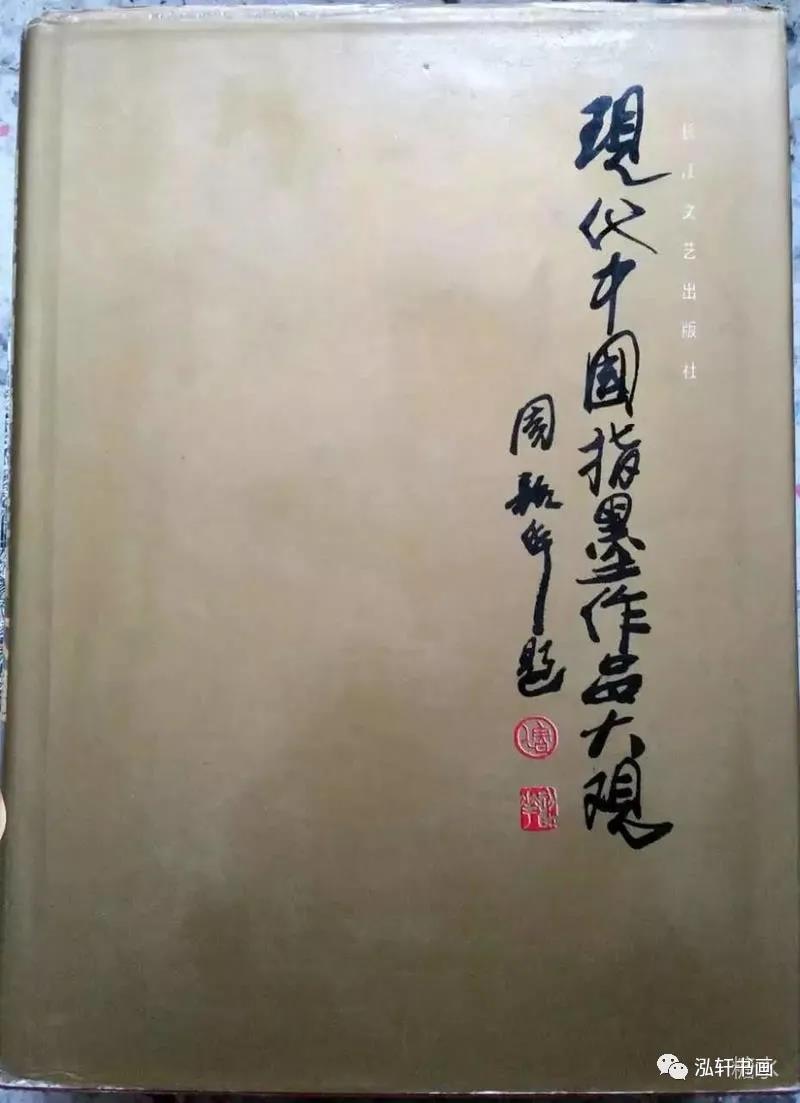 长江文艺出版社
現代中國指墨作品大观
周韶华题
泓轩书画